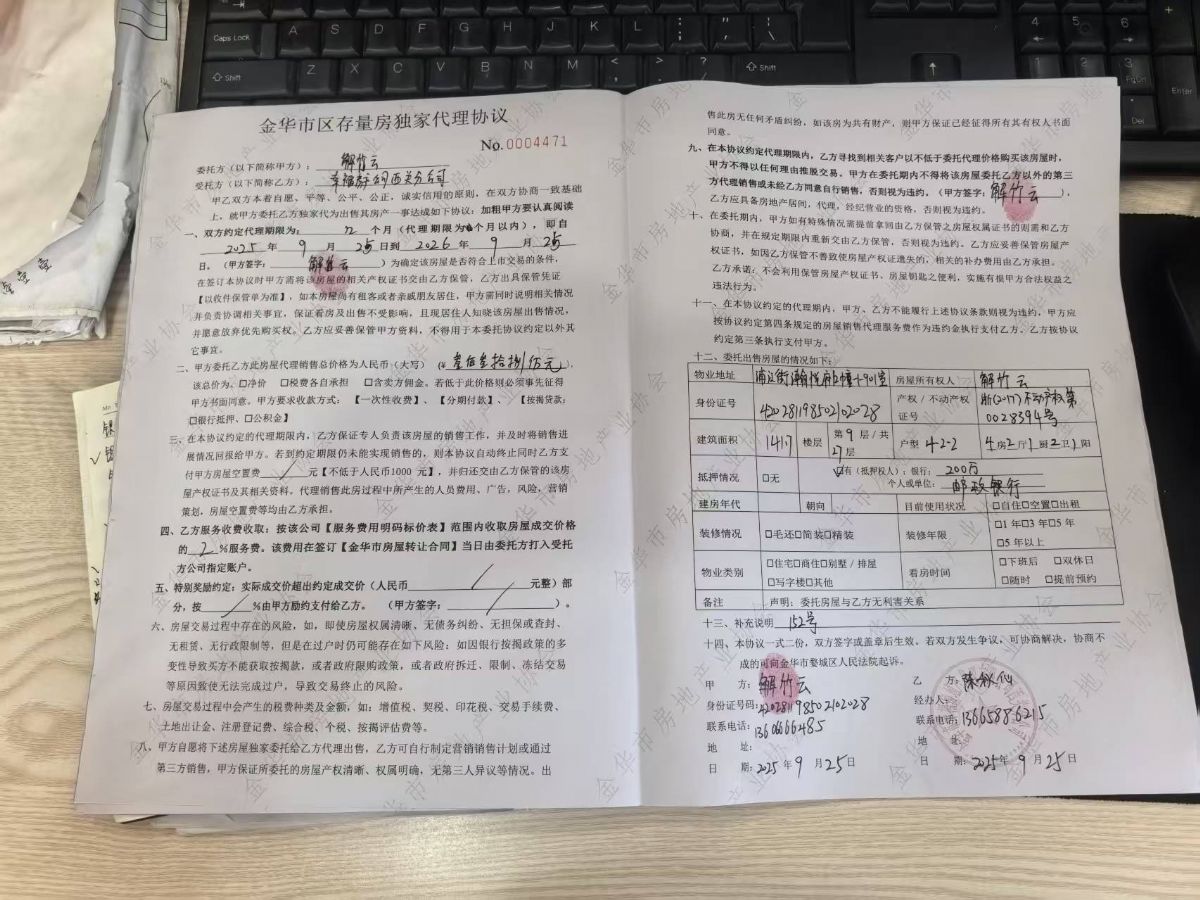 金华市区存量房独家代理协议
No.0004471
委托方（以下简称甲方）：解竹云
受托方（以下简称乙方）：
甲乙双方本着自愿、平等、公平、公正，诚实信用的原则，在双方协商一致基础
上，就甲方委托乙方独家代为出售其房产一事达成如下协议：加粗甲方要认真阅读
一、双方约定代理期限为：12 个月（代理期限为 个月以内），即自
2025 年 9 月 25 日到 2026 年 9 月 25
日。（甲方签字：解竹云）为确定该房屋是否符合上市交易的条件，
在签订本协议时甲方需将该房屋的相关产权证书交由乙方保管，乙方出具保管凭证
【以收件保管单为准】，如本房屋尚有租客或者亲戚朋友居住，甲方需同时说明相关情况
并负责协调相关事宜，保证看房及出售不受影响，且现居住人知晓该房屋出售情况，
并愿意放弃优先购买权。乙方应妥善保管甲方资料，不得用于本委托协议约定以外其
它事宜。
二、甲方委托乙方此房屋代理销售总价格为人民币（大写）（¥ 壹佰叁拾捌万元），
该总价为，☐净价 ☐税费各自承担 ☐含卖方佣金。若低于此价格则必须事先征得
甲方书面同意。甲方要求收款方式：【一次性收费】、【分期付款】、【按揭贷款：
☐银行抵押、☐公积金】
三、在本协议约定的代理期限内，乙方保证专人负责该房屋的销售工作，并及时将销售进
展情况回报给甲方。若到约定期限仍未能实现销售的，则本协议自动终止同时乙方支
付甲方房屋空置费 / 元【不低于人民币1000 元】，并归还交由乙方保管的该房
屋产权证书及其相关资料，代理销售此房过程中所产生的人员费用、广告，风险，营销
策划，房屋空置费等均由乙方承担。
四、乙方服务收费收取：按该公司【服务费用明码标价表】范围内收取房屋成交价格
的 2 %服务费。该费用在签订【金华市房屋转让合同】当日由委托方打入受托
方公司指定账户。
五、特别奖励约定：实际成交价超出约定成交价（人民币 / 元整）部
分，按 / %由甲方励约支付给乙方。（甲方签字： / ）。
六、房屋交易过程中存在的风险，如，即使房屋权属清晰、无债务纠纷、无担保或查封、
无租赁、无行政限制等，但是在过户时仍可能存在如下风险：如因银行按揭政策的多
变性导致买方不能获取按揭款，或者政府限购政策，或者政府拆迁、限制、冻结交易
等原因致使无法完成过户，导致交易终止的风险。
七、房屋交易过程中会产生的税费种类及金额，如：增值税、契税、印花税、交易手续费、
土地出让金、注册登记费、综合税、个税、按揭评估费等。
八、甲方自愿将下述房屋独家委托给乙方代理出售，乙方可自行制定营销销售计划或通过
第三方销售，甲方保证所委托的房屋产权清晰、权属明确，无第三人异议等情况。出
售此房无任何矛盾纠纷，如该房为共有财产，则甲方保证已经征得所有其有权人书面
同意。
九、在本协议约定代理期限内，乙方寻找到相关客户以不低于委托代理价格购买该房屋时，
甲方不得以任何理由推脱交易。甲方在委托期内不得将该房屋委托乙方以外的第三
方代理销售或未经乙方同意自行销售，否则视为违约。（甲方签字：解竹云），
乙方应具备房地产居间，代理，经纪营业的资格，否则视为违约。
十、在委托期内，甲方如有特殊情况需提前拿回由乙方保管之房屋权属证书的则需和乙方
协商，并在规定期限内重新交由乙方保管，否则视为违约。乙方应妥善保管房屋产
权证书，如因乙方保管不善致使房屋产权证遗失的，相关的补办费用由乙方承担。
乙方承诺：不会利用保管房屋产权证书、房屋钥匙之便利，实施有损甲方合法权益之
违法行为。
十一、在本协议约定的代理期内，甲方、乙方不能履行上述协议条款则视为违约，甲方应
按协议约定第四条规定的房屋销售代理服务费作为违约金执行支付乙方。乙方按协议
约定第三条执行支付甲方。
十二、委托出售房屋的情况如下：
物业地址 幢1-901室 房屋所有权人 解竹云
身份证号 420281198502102028 产权／不动产权证号 浙(2017)不动产权第0028394号
建筑面积 141.7 楼层 第 9 层／共 27 层 户型 4-2-2 4房2厅1厨2卫1阳
抵押情况 ☐无 ☑有（抵押权人）：银行：200万
个人或单位：邮政银行
建房年代 朝向 目前使用状况 ☐自住☐空置☐出租
装修情况 ☐毛还☐简装☐精装 装修年限 ☐1年☐3年☐5年
☐5年以上
物业类别 ☐住宅☐商住☐别墅／排屋 看房时间 ☐下班后 ☐双休日
☐写字楼☐其他 ☐随时 ☐提前预约
备注 声明：委托房屋与乙方无利害关系
十三、补充说明 152号
十四、本协议一式二份，双方签字或盖章后生效。若双方发生争议，可协商解决，协商不
成的可向金华市婺城区人民法院起诉。
甲 方：解竹云
身份证号码：420281198502102028
联系电话：13606666485
地 址：
日 期：2025 年 9 月 25 日
乙 方：陈秋仙
经办人：
联系电话：13665886215
地 址：
日 期：2025 年 9 月 25 日